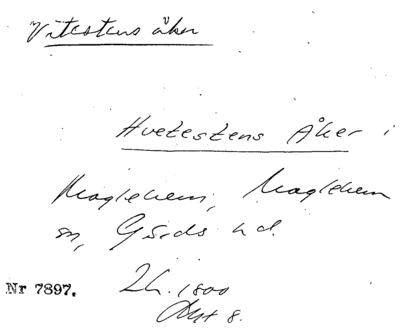 Vitestens åker
Hvetestens Åker i
Maglehem, Maglehem
sn, Gärds hd.
Lh. 1800
Akt 8.
Nr 7897.